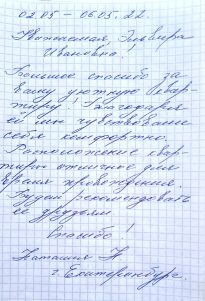 02.05 – 06.05.22.
Уважаемая, Эльвира
Ивановна!
Большое спасибо за
Вашу уютную квар-
тиру! Благодаря
ей мы чувствовали
себя комфортно.
Расположение квар-
тиры отличное для
время провождения.
Будем рекомендовать
ее друзьям.
Спасибо!
Наталия К
г. Екатеринбург.